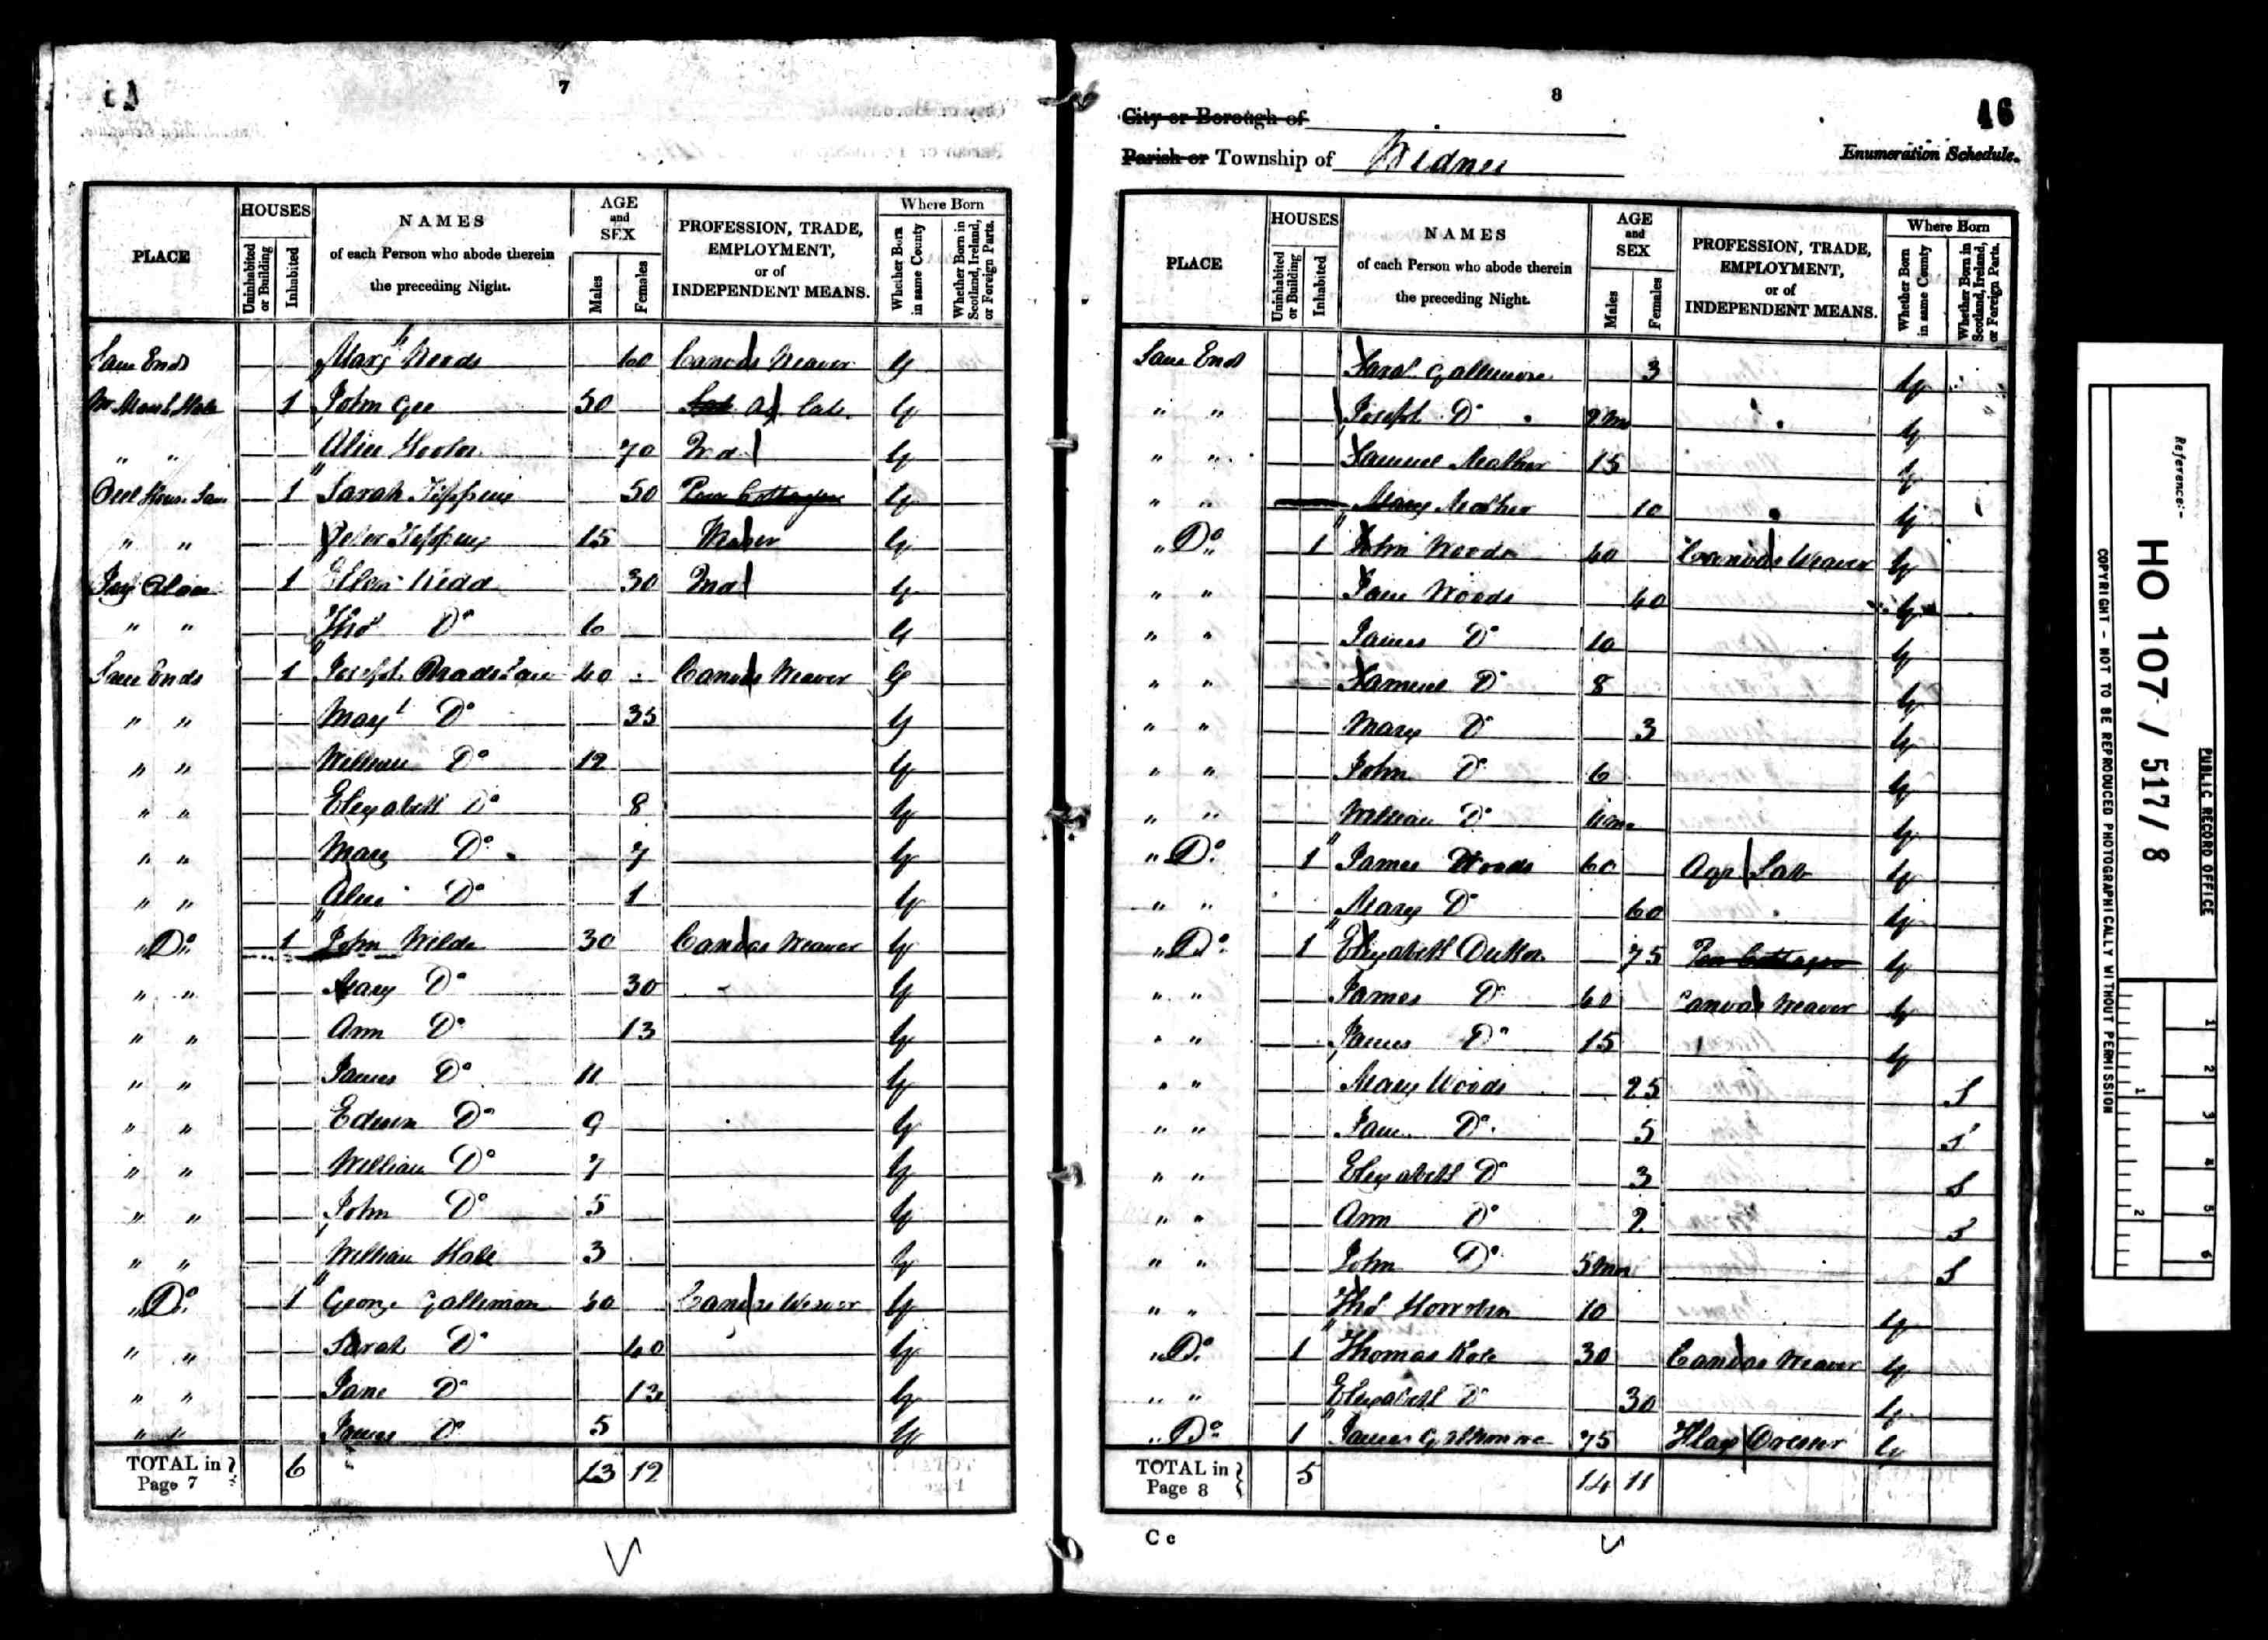 7
PLACE
HOUSES
Uninhabited or Building
Inhabited
NAMES
of each Person who abode therein
the preceding Night.
AGE
and
SEX
Males
Females
PROFESSION, TRADE,
EMPLOYMENT,
or of
INDEPENDENT MEANS.
Where Born
Whether Born in same County
Whether Born in Scotland, Ireland, or Foreign Parts.
Lane Ends Mary Woods 60 Canvas Weaver y
1 John Gee 50 Ag Lab. y
" " Alice 70 Ind y
1 Sarah 50 y
" " Peter 15 y
1 Ellen Kidd 30 Ind y
" " Thos Do 6 y
Lane Ends 1 Joseph Bradshaw 40 Canvas Weaver y
" " Margt Do 35 y
" " William Do 12 y
" " Elizabeth Do 8 y
" " Mary Do 7 y
" " Alice Do 1 y
" Do " 1 John Wilde 30 Canvas Weaver y
" " Mary Do 30 y
" " Ann Do 13 y
" " James Do 11 y
" " Edwin Do 9 y
" " William Do 7 y
" " John Do 5 y
" " William Hale 3 y
" Do " 1 George Gallimore 40 Canvas Weaver y
" " Sarah Do 40 y
" " Jane Do 13 y
" " James Do 5 y
TOTAL in Page 7 6 13 12
8
46
City or Borough of
Parish or Township of Widnes
Enumeration Schedule.
PLACE
HOUSES
Uninhabited or Building
Inhabited
NAMES
of each Person who abode therein
the preceding Night.
AGE
and
SEX
Males
Females
PROFESSION, TRADE,
EMPLOYMENT,
or of
INDEPENDENT MEANS.
Where Born
Whether Born in same County
Whether Born in Scotland, Ireland, or Foreign Parts.
Lane Ends Sarah Gallimore 3 y
" " Joseph Do y
" " Samuel Mather 15 y
" " Mary Mather 10 y
" Do " 1 John Woods 40 Canvas Weaver y
" " Jane Woods 40 y
" " James Do 10 y
" " Samuel Do 8 y
" " Mary Do 3 y
" " John Do 6 y
" " William Do y
" Do 1 James Woods 60 Agr Lab y
" " Mary Do 60 y
" Do 1 Elizabeth Dutton 75 y
" " James Do 40 Canvas Weaver y
" " James Do 15 y
" " Mary Woods 25 S
" " Jane Do 5 S
" " Elizabeth Do 3 S
" " Ann Do 2 S
" " John Do 5 mo S
" " Thos 10 y
" Do 1 Thomas 30 Canvas Weaver y
" " Elizabeth Do 30 y
" Do 1 James Gallimore 75 Flax Dresser y
TOTAL in Page 8 5 14 11
C c
Reference:-
HO 107 / 517 / 8
PUBLIC RECORD OFFICE
COPYRIGHT - NOT TO BE REPRODUCED PHOTOGRAPHICALLY WITHOUT PERMISSION
1 2 3 4 5 6
1 2